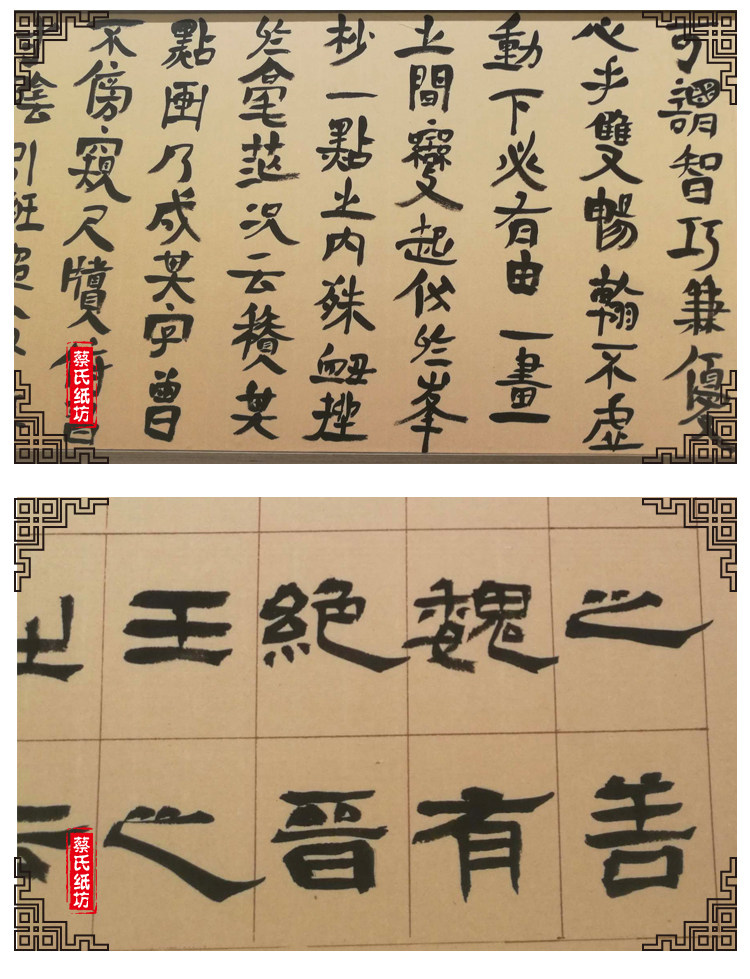 可謂智巧兼優
心手雙暢翰不虛
動下必有由一畫
之間變起伏於峯
杪一點之內殊衄挫
於毫茫況云積其
點画乃成其字曾
不傍窺尺牘俯習
陰引班超
蔡氏纸坊
之善
魏有
絕晉
王之
蔡氏纸坊